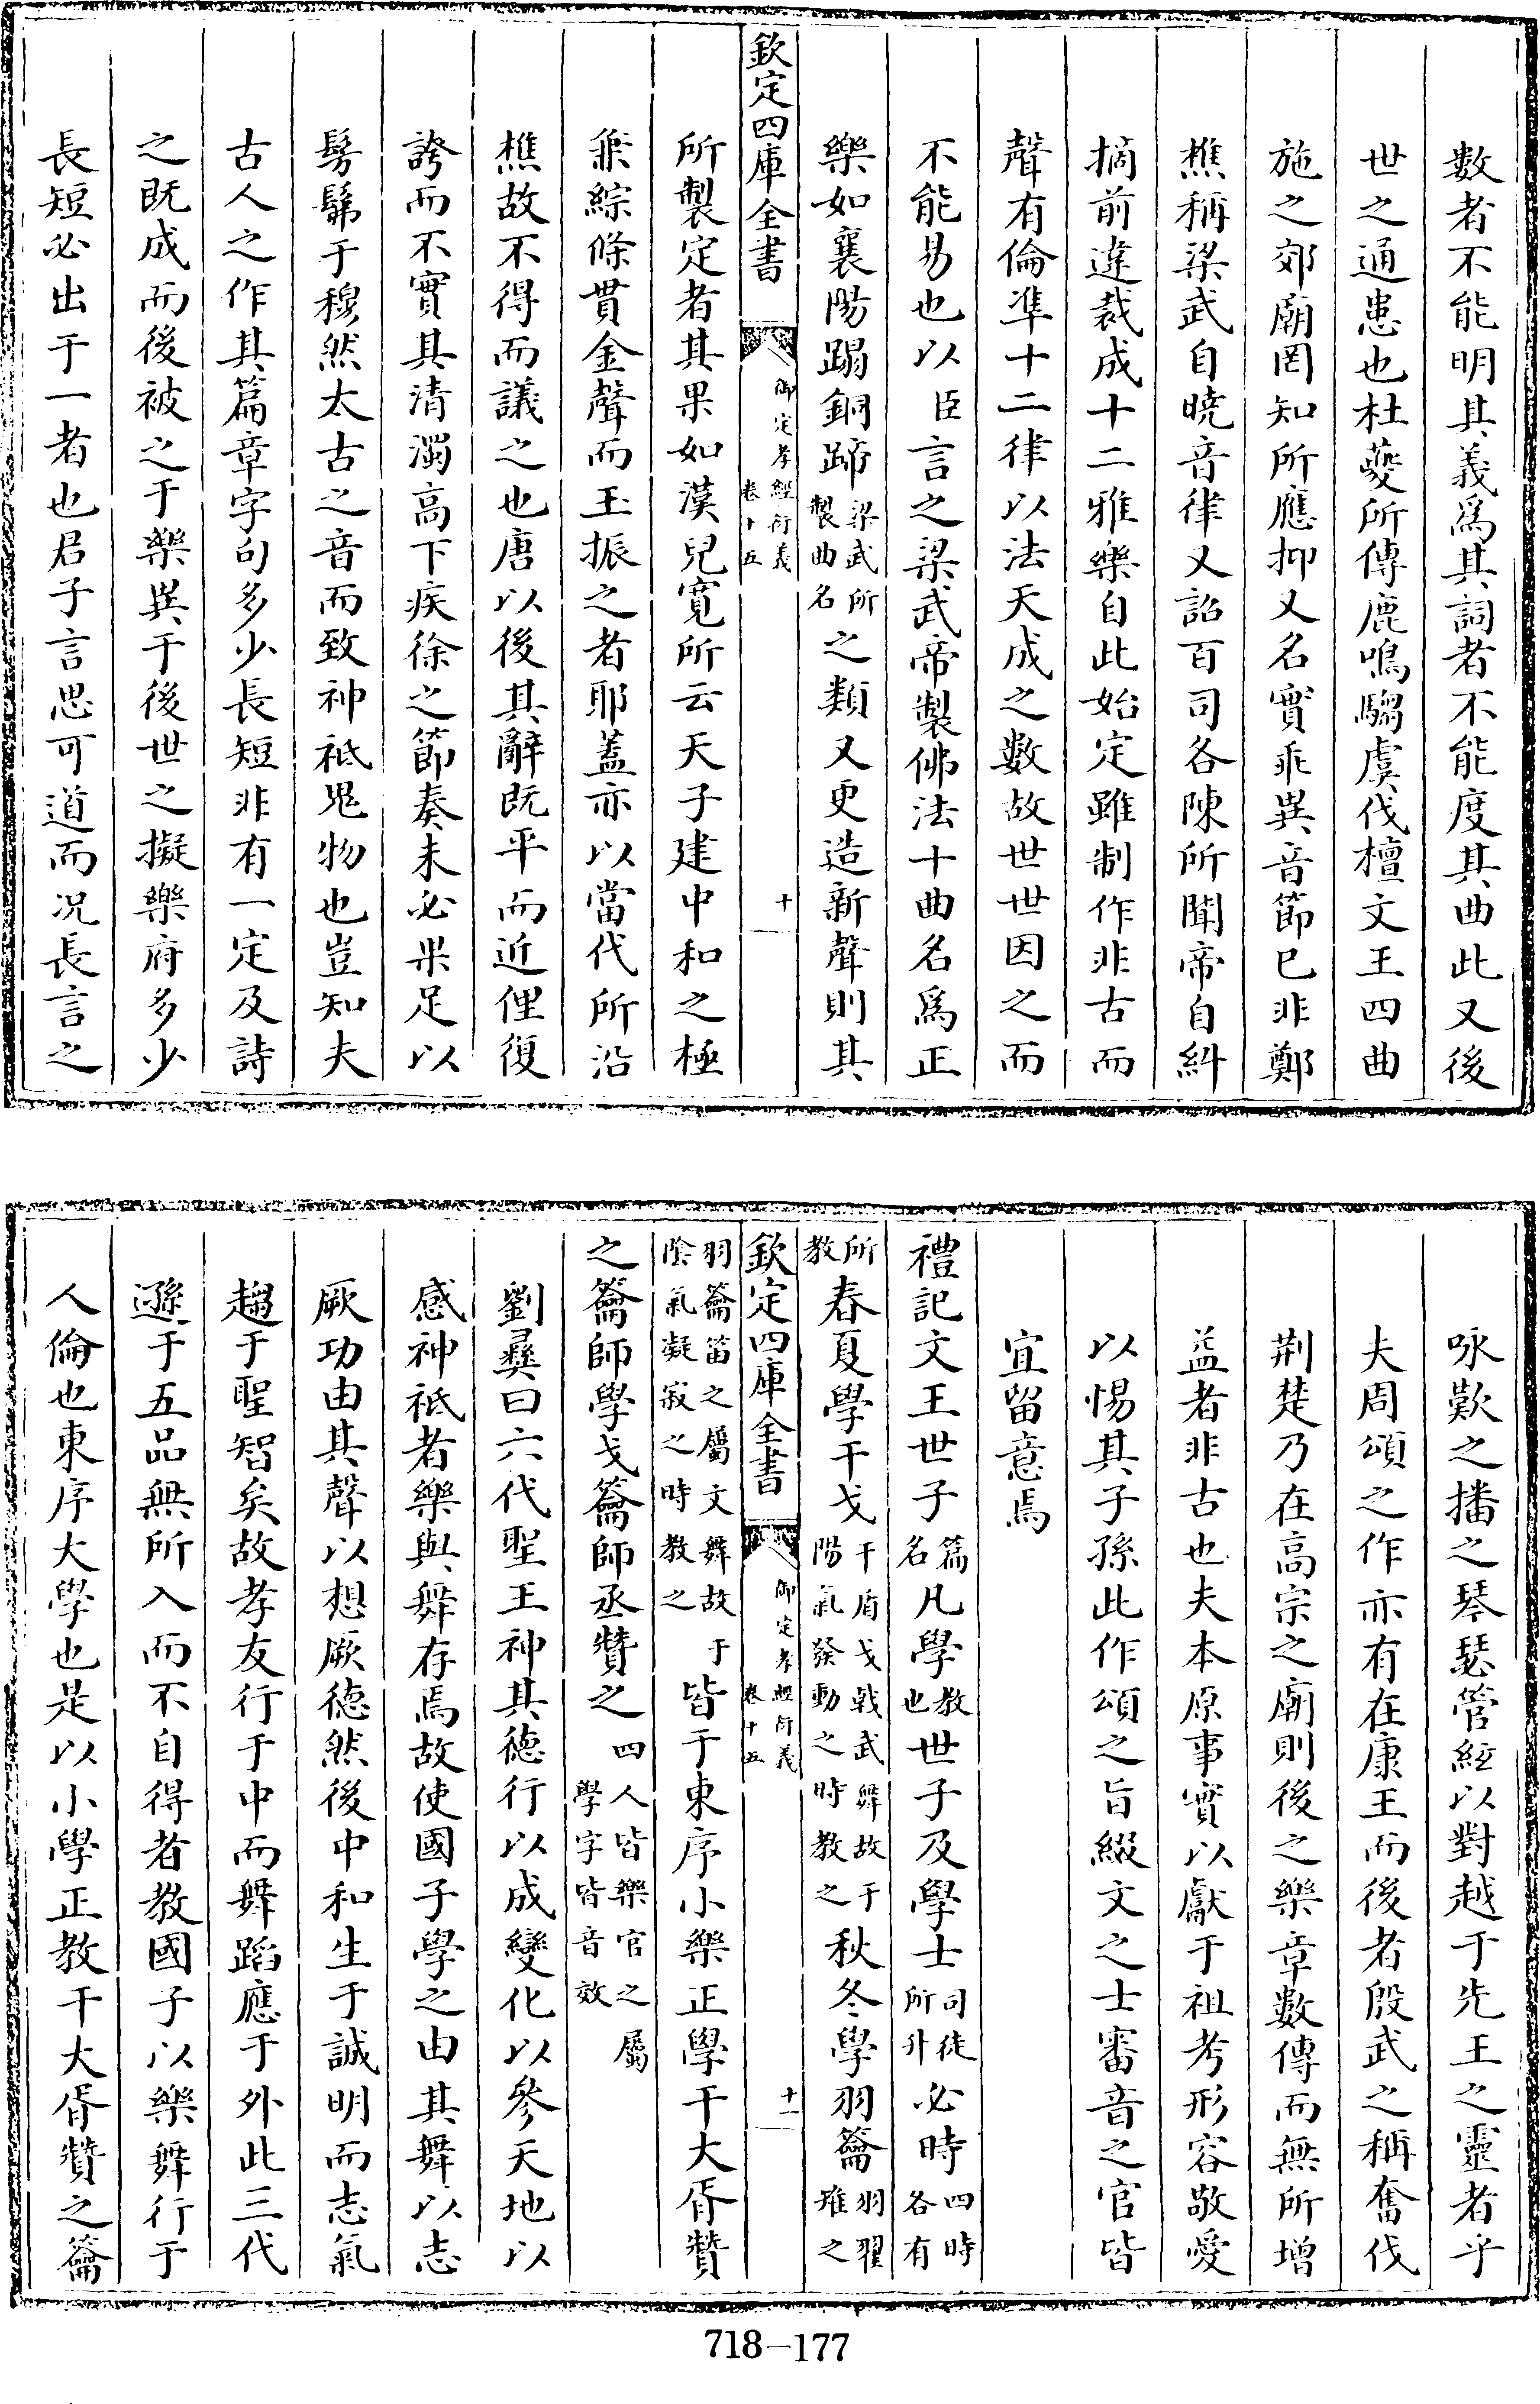 數者不能明其義爲其詞者不能度其曲此又後
世之通患也杜夔所傳鹿鳴騶虞伐檀文王四曲
施之郊廟罔知所應抑又名實乖異音節已非鄭
樵稱梁武自曉音律又詔百司各陳所聞帝自糾
摘前違裁成十二雅樂自此始定雖制作非古而
聲有倫準十二律以法天成之數故世世因之而
不能易也以臣言之梁武帝製佛法十曲名爲正
樂如襄陽蹋銅蹄梁武所製曲名之類又更造新聲則其
欽定四庫全書 御定孝經衍義 卷十五 十
所製定者其果如漢兒寬所云天子建中和之極
兼綜條貫金聲而玉振之者耶蓋亦以當代所沿
樵故不得而議之也唐以後其辭既平而近俚復
誇而不實其清濁高下疾徐之節奏未必果足以
髣髴于穆然太古之音而致神祗鬼物也豈知夫
古人之作其篇章字句多少長短非有一定及詩
之既成而後被之于樂異于後世之擬樂府多少
長短必出于一者也君子言思可道而况長言之
咏歎之播之琴瑟管絃以對越于先王之靈者乎
夫周頌之作亦有在康王而後者殷武之稱奮伐
荆楚乃在高宗之廟則後之樂章數傳而無所增
益者非古也夫本原事實以獻于祖考形容敬愛
以惕其子孫此作頌之旨綴文之士審音之官皆
宜留意焉
禮記文王世子篇名凡學教也世子及學士司徒所升必時四時各有
所教春夏學干戈干盾戈戟武舞故于陽氣發動之時教之秋冬學羽籥羽翟雉之
欽定四庫全書 御定孝經衍義 卷十五 十一
羽籥笛之屬文舞故于陰氣凝寂之時教之皆于東序小樂正學干大胥贊
之籥師學戈籥師丞贊之四人皆樂官之屬學字皆音效
劉彛曰六代聖王神其德行以成變化以參天地以
感神祗者樂與舞存焉故使國子學之由其舞以志
厥功由其聲以想厥德然後中和生于誠明而志氣
趨于聖智矣故孝友行于中而舞蹈應于外此三代
遜于五品無所入而不自得者教國子以樂舞行于
人倫也東序大學也是以小學正教干大胥贊之籥
718-177